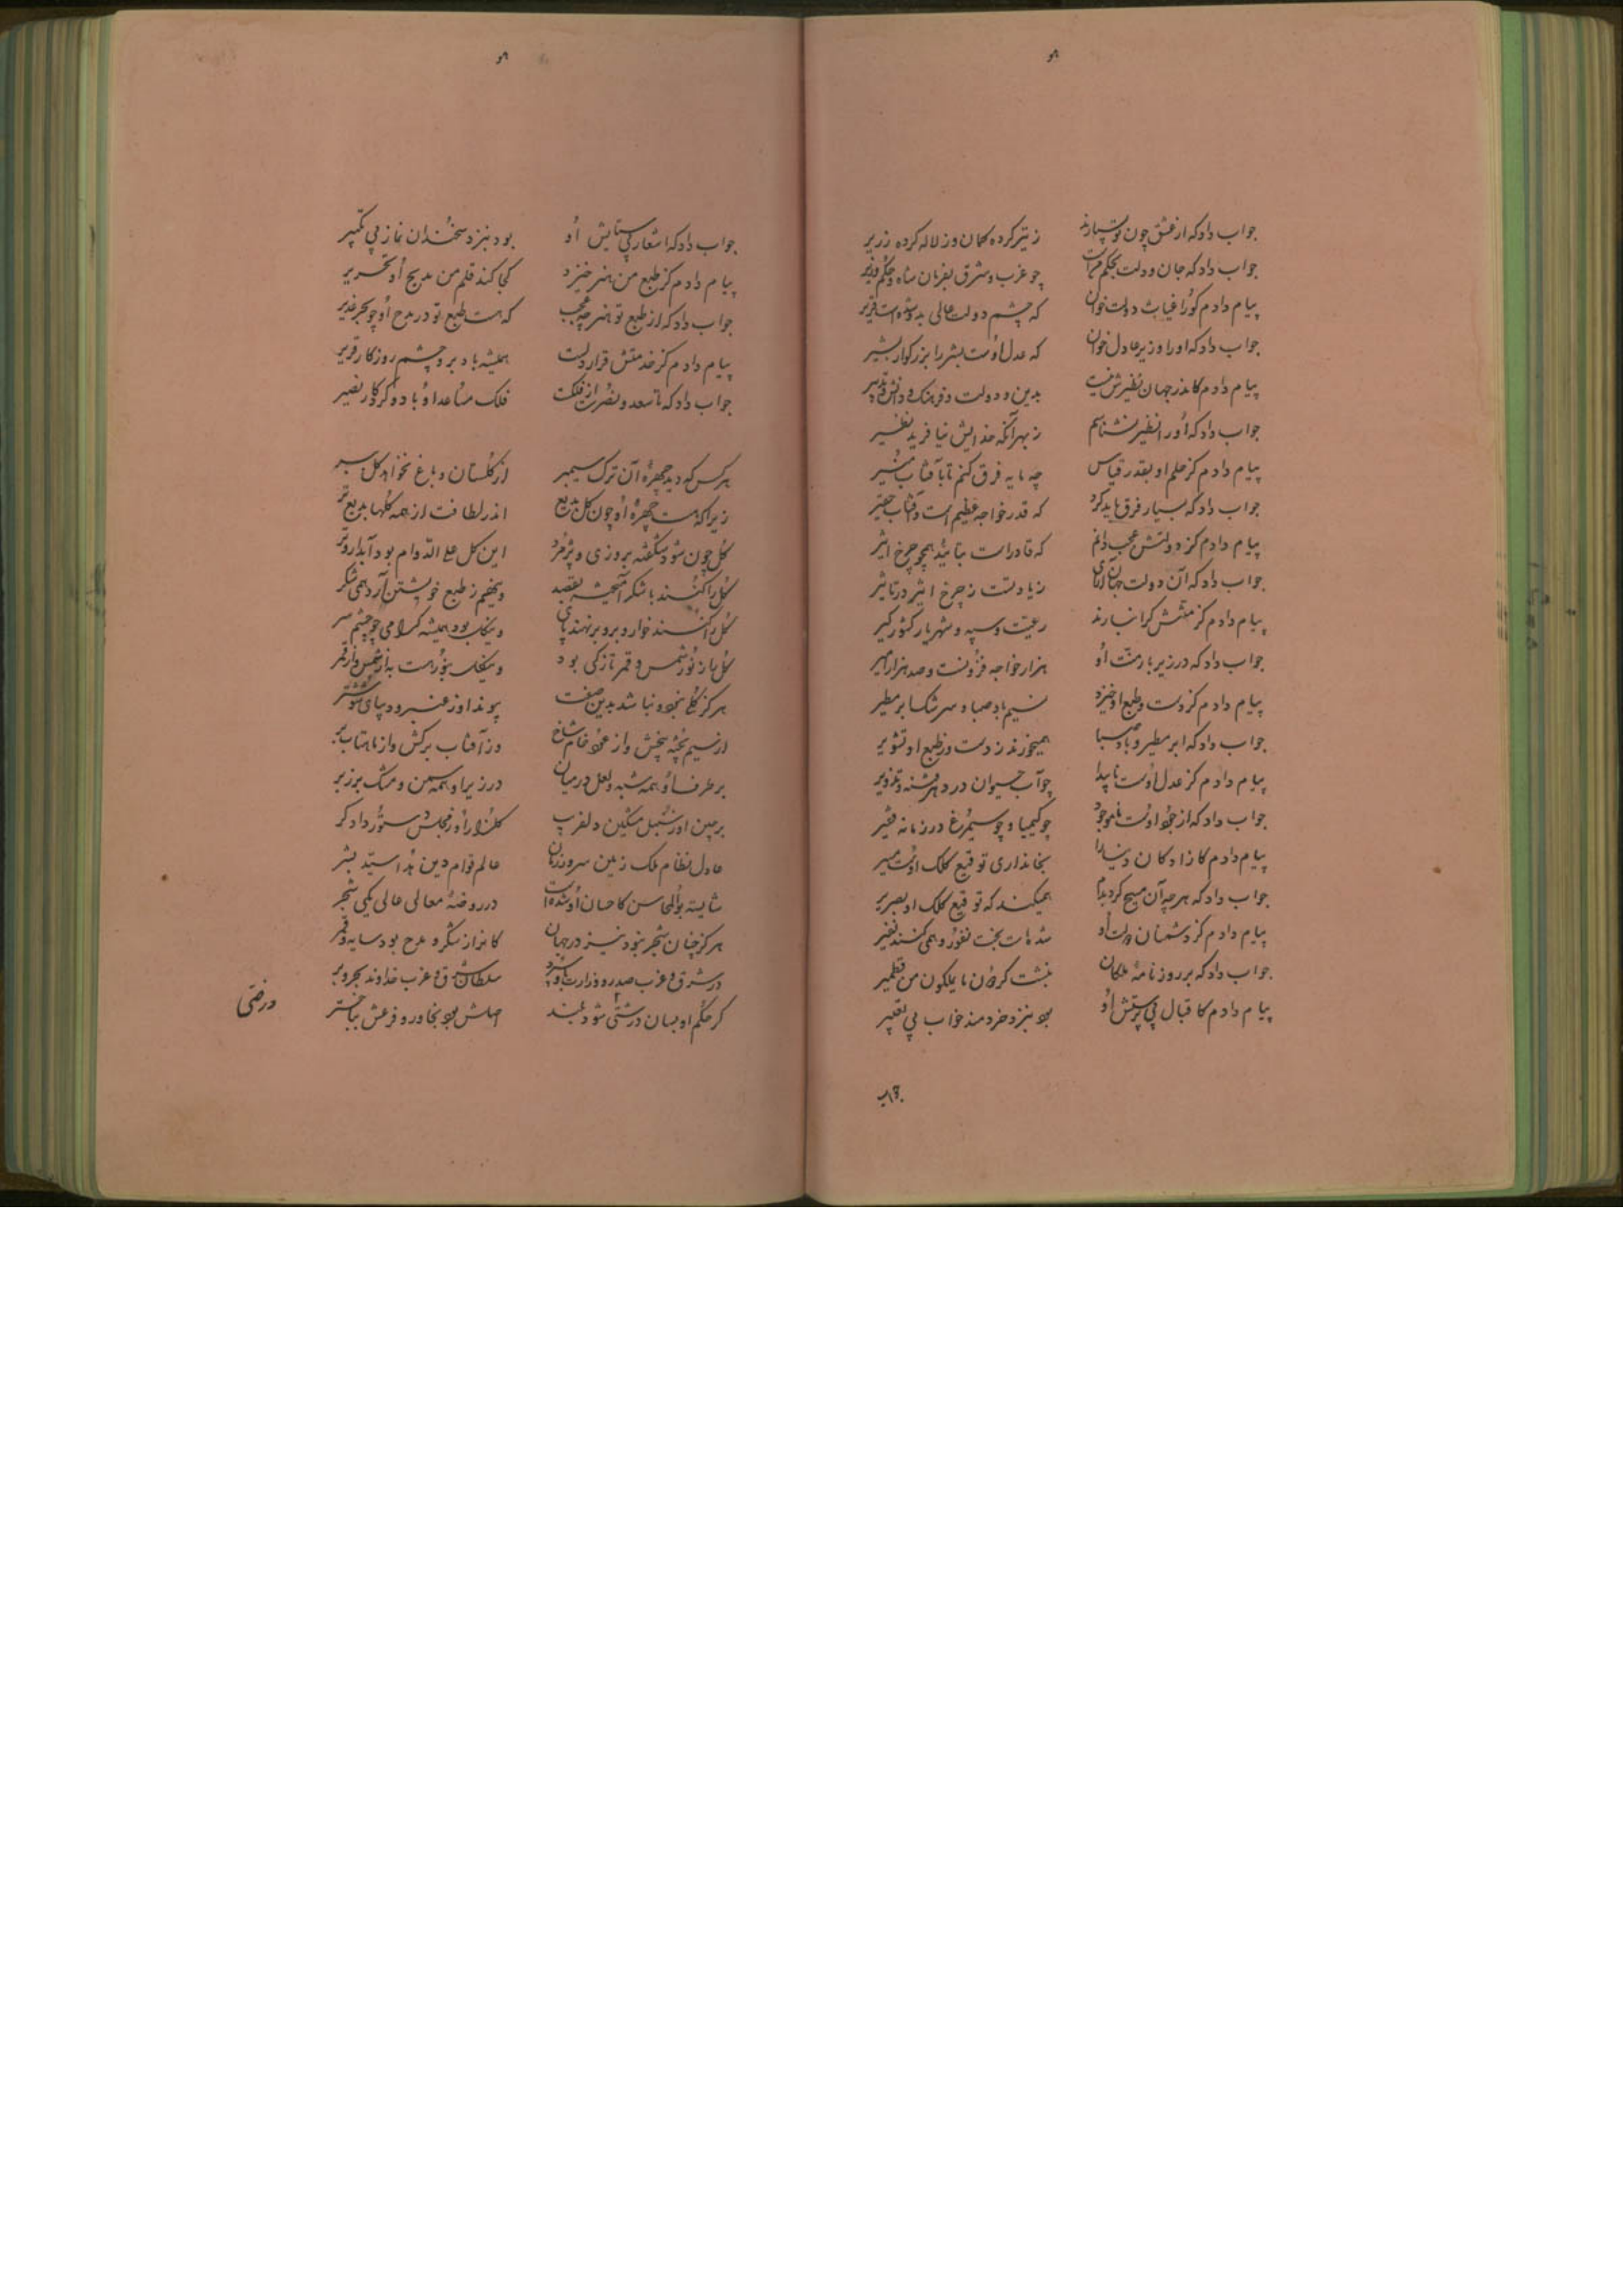 جواب داد که از عشق چون تو بسیارند    ز تیر کرده کمان و ز لاله کرده زریر
جواب داد که جان و دلت بحکم مراست    چو غرب و شرق بفرمان شاه و حکم وزیر
پیام دادم کورا غیاث دولت خوان    که چشم دولت عالی بدو شده است قریر
جواب داد که اورا وزیر عادل خوان    که عدل اوست بشر را بزرکوار بشیر
پیام دادم کاندر جهان نظیرش نیست    بدین و دولت و فرهنک و دانش و تدبیر
جواب داد که اورا نظیر نشناسم    ز بهر آنکه خدایش نیافرید نظیر
پیام دادم کز حلم او بقدر قیاس    چه مایه فرق کنم تا بآفتاب منیر
جواب داد که بسیار فرق باید کرد    که قدر خواجه عظیم است و آفتاب حقیر
پیام دادم کز دولتش عجب دانم    که قادر است بتأیید همچو چرخ اثیر
جواب داد که آن دولت جهان آرای    زیادتست ز چرخ اثیر در تاثیر
پیام دادم کز منتش کرانبارند    رعیت و سپه و شهریار کشور کیر
جواب داد که در زیر بار منت او    هزار خواجه فزونست و صد هزار امیر
پیام دادم کز دست و طبع او خیزد    نسیم باد صبا و سرشک ابر مطیر
جواب داد که ابر مطیر و باد صبا    همیخورند ز دست و ز طبع او تشویر
پیام دادم کز عدل اوست ناپیدا    چو آب حیوان در دهر فتنه و تزویر
جواب داد که از جود اوست ناموجود    چو کیمیا و چو سیمرغ در زمانه فقیر
پیام دادم کازادکان دنیا را    بخانداری توقیع کلک اوست مسیر
جواب داد که هر چه آن مسیح کرد بدم    همیکند که توقیع کلک او بصریر
پیام دادم کز دشمنان دولت او    شده است بخت نفور و همی کنند نفیر
جواب داد که بر روزنامهٔ ملکان    نبشت کردون ما یملکون من قطمیر
پیام دادم کاقبال بی پرستش او    بود بنزد خردمند خواب بی تعبیر
جواب
جواب داد که اشعار بی ستایش او    بود بنزد سخندان نماز بی تکبیر
پیام دادم کز طبع من هنر خیزد    کجا کند قلم من مدیح او تحریر
جواب داد که از طبع تو هنر چه عجب    که هست طبع تو در مدح او چو بحر غدیر
پیام دادم کز خدمتش قرار دلست    همیشه باد بر و چشم روزکار قریر
جواب داد که تا سعد و نصرت از فلکست    فلک مساعد او باد و کردکار نصیر
هر کس که دید چهرهٔ آن ترک سیمبر    از کلستان و باغ نخواهد کل ببر
زیرا که هست چهرهٔ او چون کل بدیع    اندر لطافت از همه کلها بدیع تر
کل چون شود شکفته بروزی و پژمرد    این کل علی الدوام بود آبدارو تر
کل را کنند با شکر آمیخته بقصد    وینهم ز طبع خویشتن آرد همی شکر
کل را کنند خوار و برو بر نهند پای    وینک بود همیشه کرامی چو چشم سر
کل باز نور شمس و قمر تازکی بود    وینک بنور هست به از شمس و از قمر
هرکز کلی نبود و نباشد بدین صفت    پوند او ز عنبر و دیبای شوشتر
از سیم پخته پنجش و از عود خام شاخ    وز آفتاب برکش و از ماهتاب بر
بر طرف او همه شبه و لعل در میان    در زیر او همه سمن و مشک بر زبر
بر چین او ز سنبل مشکین دلفریب    کلزار را و ز مجلس دستور دادکر
عادل نظام ملک زمین سرو زمان    عالم قوام دین هدا سید بشر
شایسته بوالمحاسن کاحسان او شده است    در روضهٔ معالی عالی یکی شجر
هرکز چنان شجر نبود نیز در جهان    کانرا ز شکر و مدح بود سایه و ثمر
در شرق و غرب صدر وزارت بدو سپرد    سلطان شرق و غرب خداوند بحر و بر
کر حکم او بسان درختی شود بلند    اصلش بود بخاور و فرعش بباختر
درختی